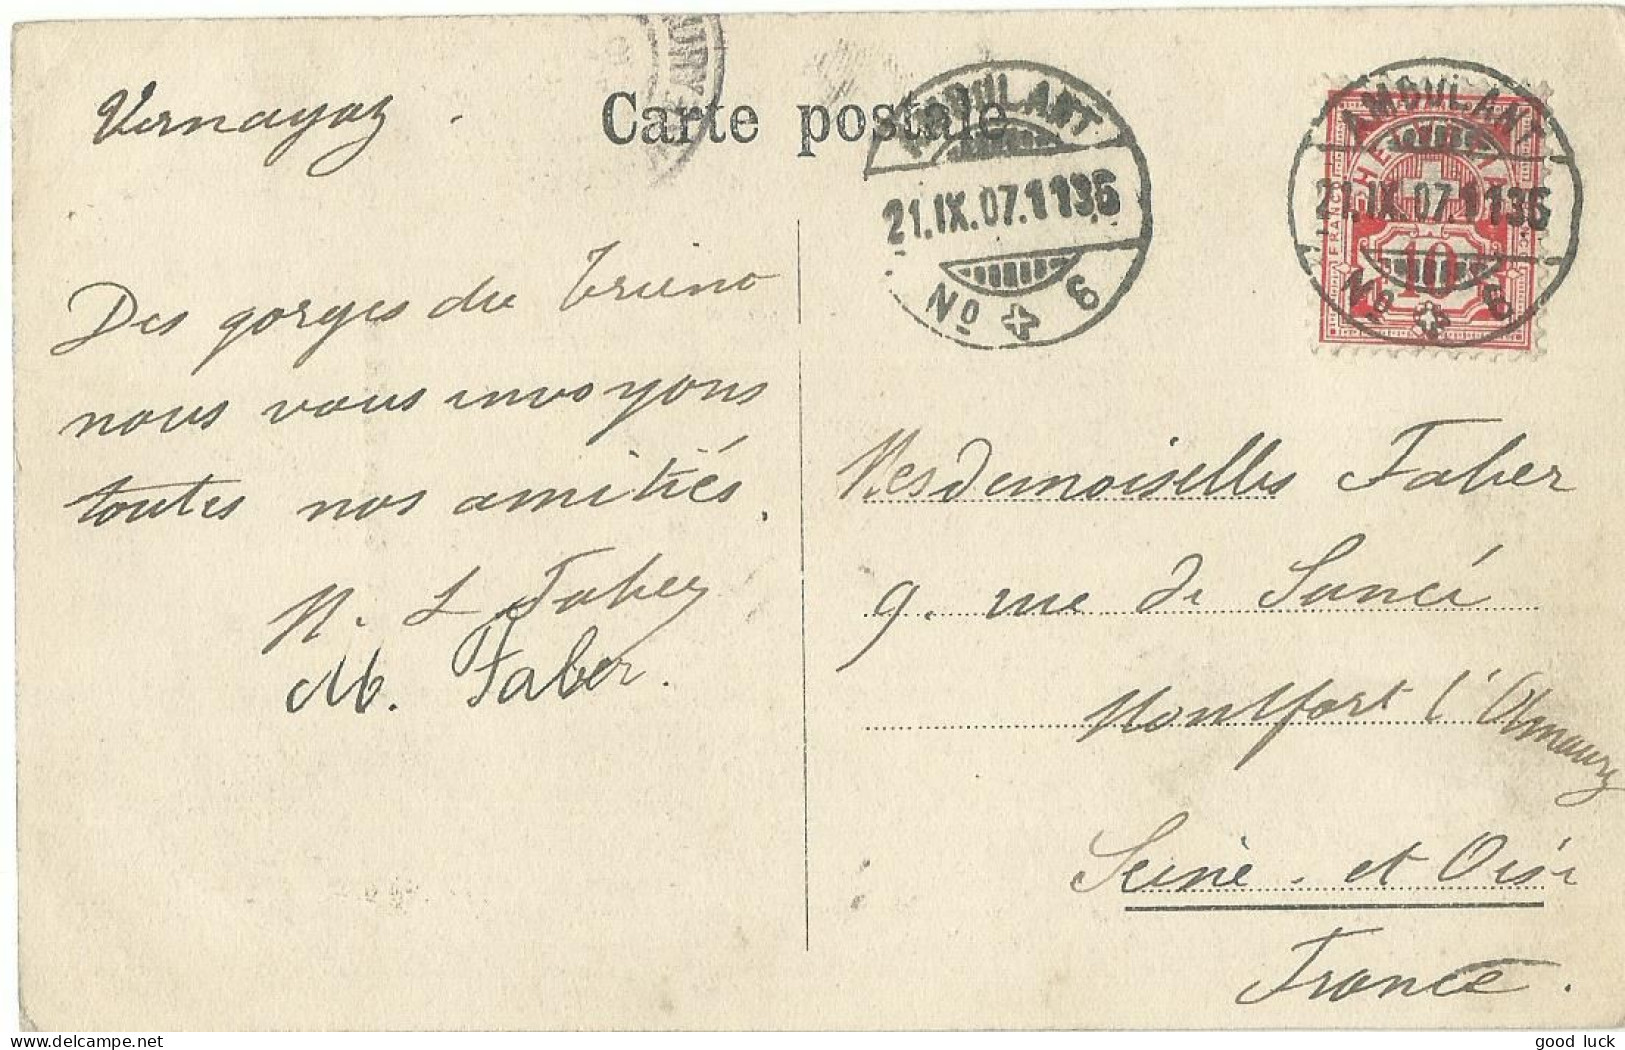 Carte postale
Vernayaz.
Des gorges du Trient
nous vous envoyons
toutes nos amitiés.
L Faber
M. Faber.
AMBULANT
21.IX.07.1136
No 6
AMBULANT
21.IX.07.1136
No 6
HELVETIA
FRANCO
10
Mesdemoiselles Faber
9. rue de Sancé
Montfort l'Amaury
Seine. et Oise
France.
delcampe.net
good_luck